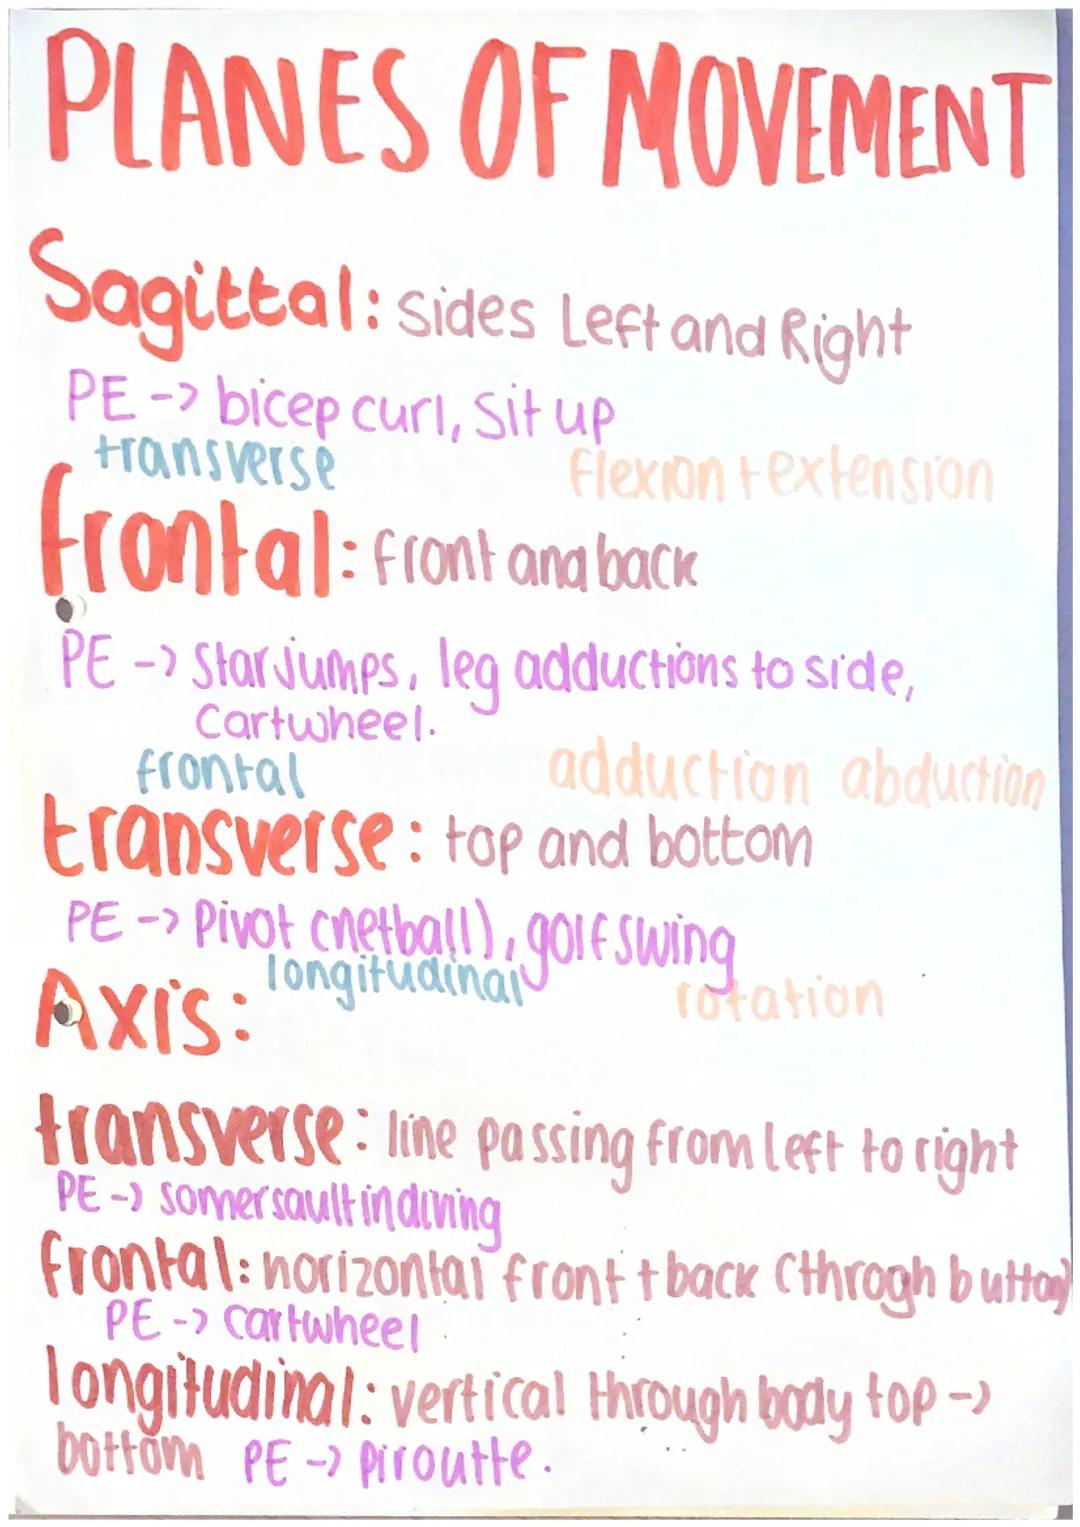 PLANES OF MOVEMENT
Sagittal: sides Left and Right
PE -> bicep curl, Sit up
transverse flexion + extension
frontal: front and back
PE -> Star jumps, leg adductions to side,
Cartwheel.
frontal adduction abduction
transverse: top and bottom
PE -> Pivot (netball), golf swing
longitudinal rotation
Axis:
transverse: line passing from left to right
PE -> somersault in diving
frontal: horizontal front + back (throgh button)
PE -> cartwheel
longitudinal: vertical through body top ->
bottom PE -> piroutte.